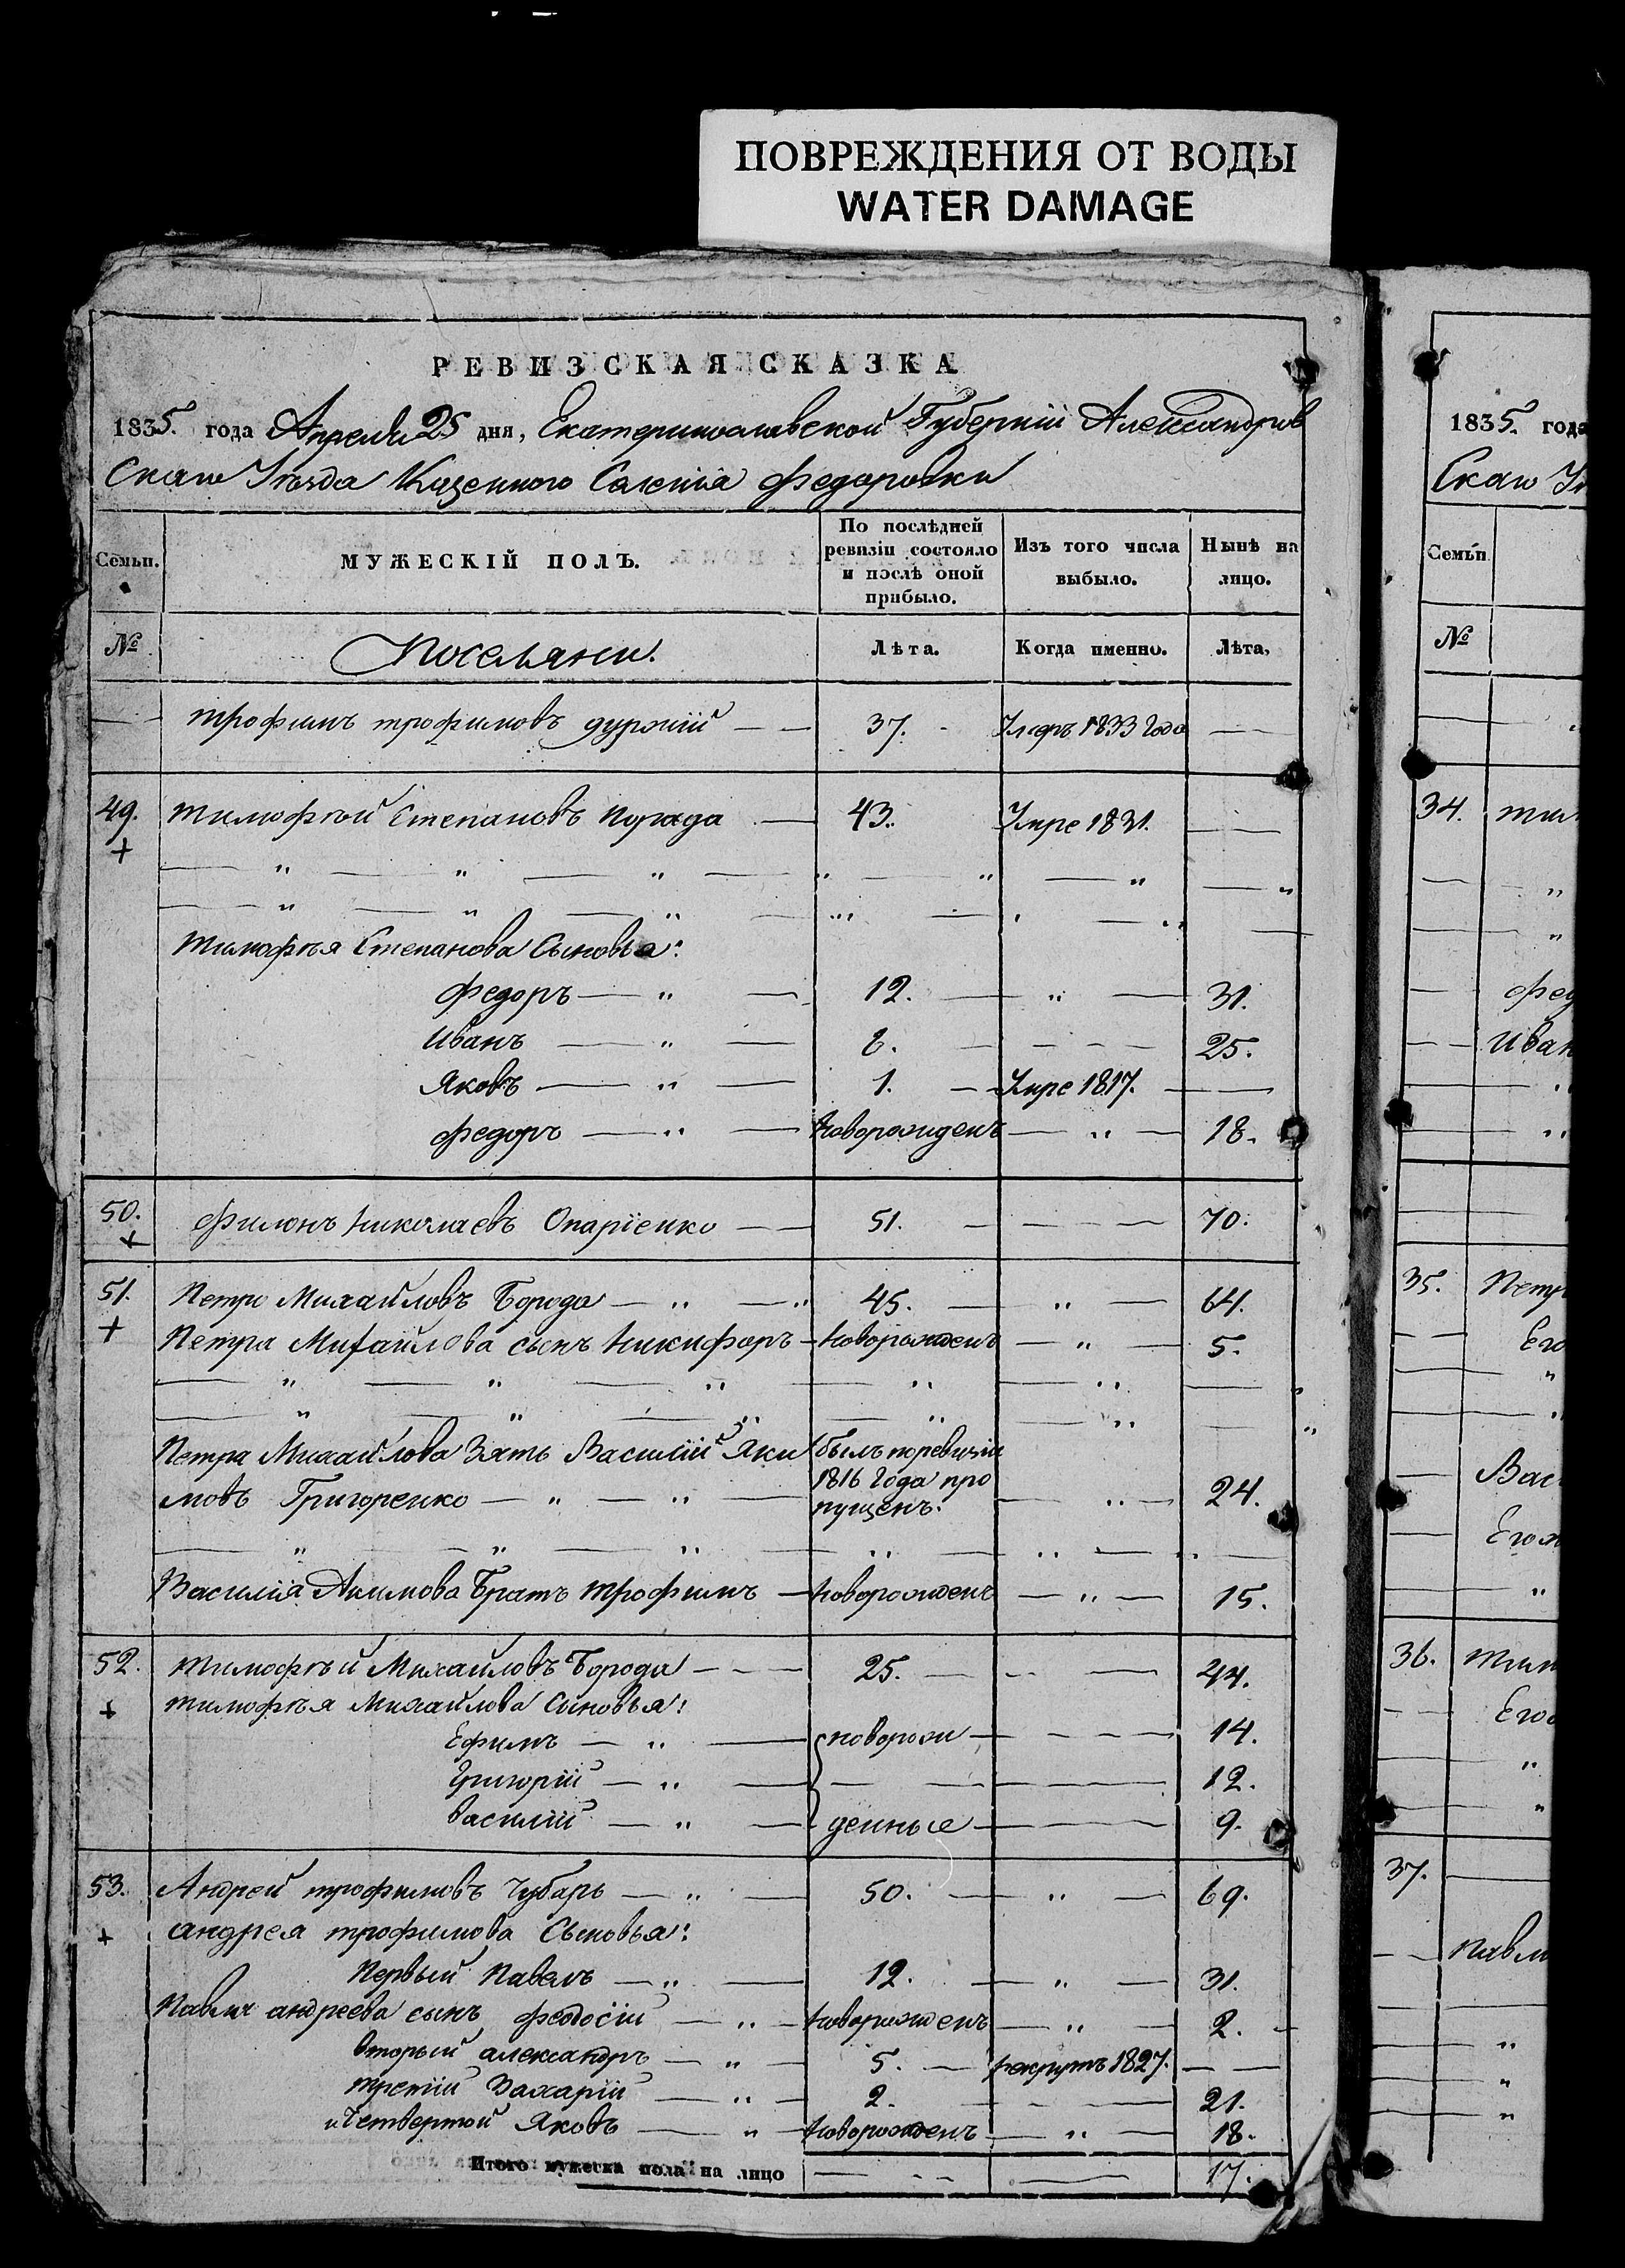 ПОВРЕЖДЕНИЯ ОТ ВОДЫ
WATER DAMAGE
РЕВИЗСКАЯ СКАЗКА
1835. года Апреля 25 дня, Екатеринославской Губернии Александров
Скаго Уезда Казенного Селенія Федоровки
Семьи.
МУЖЕСКІЙ ПОЛЪ.
По послѣдней ревизіи состояло и послѣ оной прибыло.
Изъ того числа выбыло.
Нынѣ на лицо.
№
Поселяни.
Лѣта.
Когда именно.
Лѣта,
Трофимъ трофимовъ 37. 1833 Года
49. Тимофѣй Степановъ Порада 43. Умре 1831.
Тимофѣя Степанова Сыновья:
Федоръ 12. 31.
Иванъ 6. 25.
Яковъ 1. Умре 1817.
Федоръ Новорожденъ 18.
50. Филонъ Николаевъ Опаріенко 51. 70.
51. Петро Михайловъ Борода 45. 64.
Петра Михайлова сынъ Никифоръ Новорожденъ 5.
Петра Михайлова Зять Василій Яки
мовъ Григоренко былъ поревизіи 1816 Года про пущенъ: 24.
Василія Акимова Братъ Трофимъ Новорожденъ 15.
52. Тимофѣй Михайловъ Борода 25. 44.
Тимофѣя Михайлова Сыновья:
Ефимъ новорож 14.
Григорій 12.
Василій денные 9.
53. Андрей трофимовъ Чубарь 50. 69.
Андрея трофимова Сыновья:
Первый Павелъ 12. 31.
Павла андреева сынъ Федосій Новорожденъ 2.
Вторый александръ 5. рекрутъ 1827.
Третій Захарій 2. 21.
и Четвертой Яковъ Новорожденъ 18.
Итого мужеска пола на лицо 17.
1835. года
Скаго
Семьи
№
34. Тим
Фед
Иван
35. Петр
Его
Вас
Его
36. Тим
Его
37.
Павл